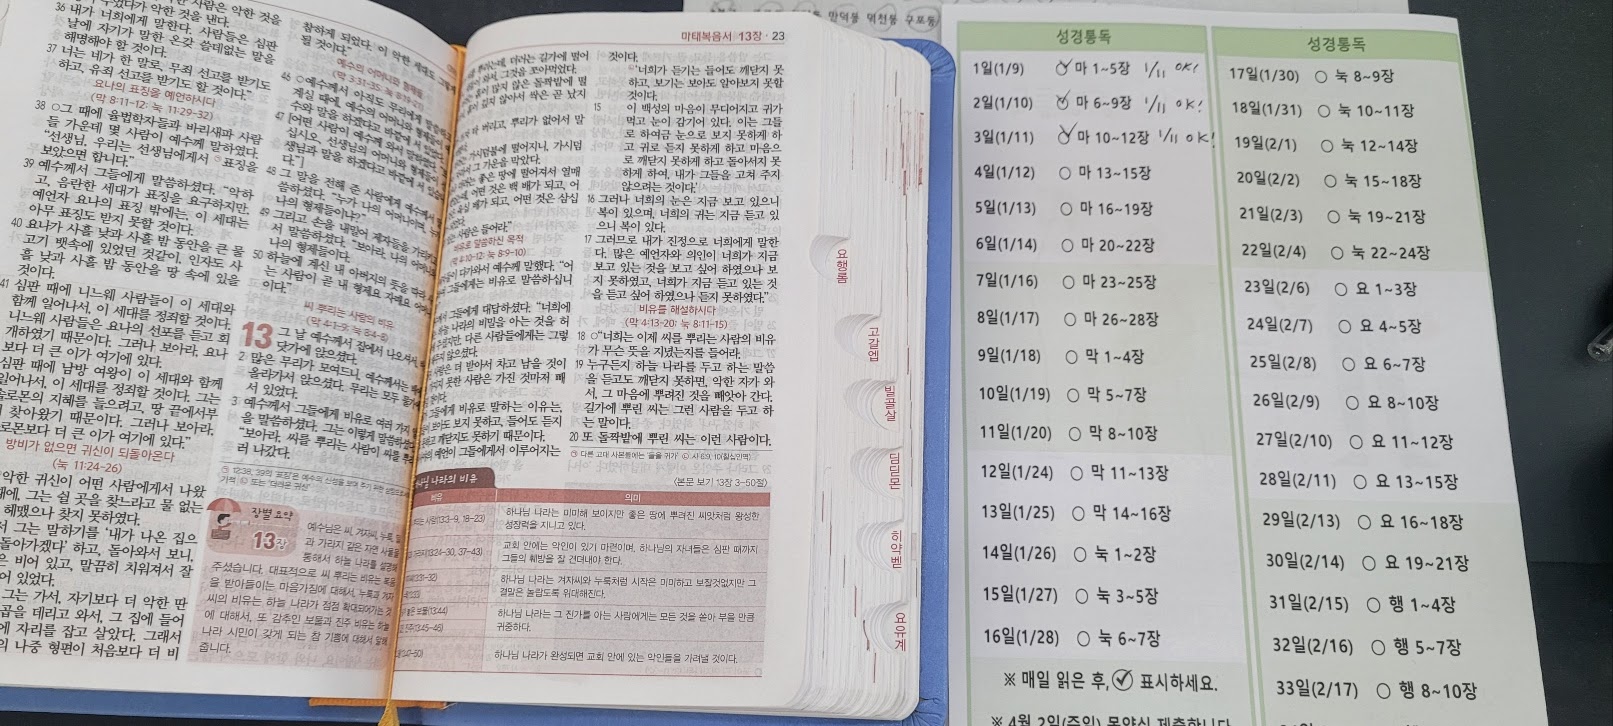 36 내가 너희에게 말한다. 사람들은 심판
날에 자기가 말한 온갖 쓸데없는 말을
해명해야 할 것이다.
37 너는 네가 한 말로, 무죄 선고를 받기도
하고, 유죄 선고를 받기도 할 것이다."
요나의 표징을 예언하시다
(막 8:11-12; 눅 11:29-32)
38 ○그 때에 율법학자들과 바리새파 사람
들 가운데 몇 사람이 예수께 말하였다.
"선생님, 우리는 선생님에게서 표징을
보았으면 합니다."
39 예수께서 그들에게 말씀하셨다. "악하
고, 음란한 세대가 표징을 요구하지만,
예언자 요나의 표징 밖에는, 이 세대는
아무 표징도 받지 못할 것이다.
40 요나가 사흘 낮과 사흘 밤 동안을 큰 물
고기 뱃속에 있었던 것같이, 인자도 사
흘 낮과 사흘 밤 동안을 땅 속에 있을
것이다.
41 심판 때에 니느웨 사람들이 이 세대와
함께 일어나서, 이 세대를 정죄할 것이다.
니느웨 사람들은 요나의 선포를 듣고 회
개하였기 때문이다. 그러나 보아라, 요나
보다 더 큰 이가 여기에 있다.
심판 때에 남방 여왕이 이 세대와 함께
일어나서, 이 세대를 정죄할 것이다. 그는
솔로몬의 지혜를 들으려고, 땅 끝에서부
찾아왔기 때문이다. 그러나 보아라,
로몬보다 더 큰 이가 여기에 있다."
방비가 없으면 귀신이 되돌아온다
(눅 11:24-26)
악한 귀신이 어떤 사람에게서 나왔
때에, 그는 쉴 곳을 찾느라고 물 없는
헤맸으나 찾지 못하였다.
서 그는 말하기를 '내가 나온 집으
돌아가겠다' 하고, 돌아와서 보니,
은 비어 있고, 말끔히 치워져서 잘
어 있었다.
그는 가서, 자기보다 더 악한 딴
곱을 데리고 와서, 그 집에 들어
에 자리를 잡고 살았다. 그래서
의 나중 형편이 처음보다 더 비
참하게 되었다. 이 악한 세대도
될 것이다."
46 ○예수께서 아직도 무리에게 말씀하
48 그 말을 전해 준 사람에게 예수께서
씀하셨다. "누가 나의 어머니이며,
나의 형제들이냐?"
49 그리고 손을 내밀어 제자들을 가리
서 말씀하셨다. "보아라, 나의 어머니
나의 형제들이다.
50 하늘에 계신 내 아버지의 뜻을 따라
는 사람이 곧 내 형제요 자매요 어머
이다."
씨 뿌리는 사람의 비유
(막 4:1-9; 눅 8:4-8)
13 그 날 예수께서 집에서 나오셔서,
닷가에 앉으셨다.
2 많은 무리가 모여드니, 예수께서는 배
올라가서 앉으셨다. 무리는 모두 물가
서 있었다.
3 예수께서 그들에게 비유로 여러 가지
을 말씀하셨다. 그는 이렇게 말씀하셨다.
"보아라, 씨를 뿌리는 사람이 씨를 뿌
러 나갔다.
장별 요약
13장
예수님은 씨, 겨자씨, 누룩,
과 가라지 같은 자연 사물을
통해서 하늘 나라를 설명해
주셨습니다. 대표적으로 씨 뿌리는 비유는 복음
을 받아들이는 마음가짐에 대해서, 누룩과 겨자
씨의 비유는 하늘 나라가 점점 확대되어가는 것
에 대해서, 또 감추인 보물과 진주 비유는 하늘
나라 시민이 갖게 되는 참 기쁨에 대해서 말해
줍니다.
마태복음서 13장 · 23
뿌리는데, 더러는 길가에 떨어
와서, 그것을 쪼아먹었다.
흙이 많지 않은 돌짝밭에 떨
깊지 않아서 싹은 곧 났지
버리고, 뿌리가 없어서 말
가시덤불에 떨어지니, 가시덤
서 그 기운을 막았다.
좋은 땅에 떨어져서 열매
데, 어떤 것은 백 배가 되고, 어
육십 배가 되고, 어떤 것은 삼십
사람은 들어라."
비유로 말씀하신 목적
(막 4:10-12; 눅 8:9-10)
들이 다가와서 예수께 말했다. "어
그들에게는 비유로 말씀하십니
께서 그들에게 대답하셨다. "너희에
늘 나라의 비밀을 아는 것을 허
주셨지만, 다른 사람들에게는 그렇
지 않으셨다.
사람은 더 받아서 차고 남을 것이
지 못한 사람은 가진 것마저 빼
그들에게 비유로 말하는 이유는,
보아도 보지 못하고, 들어도 듣지
하고 깨닫지도 못하기 때문이다.
의 예언이 그들에게서 이루어지는
것이다.
'너희가 듣기는 들어도 깨닫지 못
하고, 보기는 보아도 알아보지 못할
것이다.
15 이 백성의 마음이 무디어지고 귀가
먹고 눈이 감기어 있다. 이는 그들
로 하여금 눈으로 보지 못하게 하
고 귀로 듣지 못하게 하고 마음으
로 깨닫지 못하게 하고 돌아서지 못
하게 하여, 내가 그들을 고쳐 주지
않으려는 것이다.'
16 그러나 너희의 눈은 지금 보고 있으니
복이 있으며, 너희의 귀는 지금 듣고 있
으니 복이 있다.
17 그러므로 내가 진정으로 너희에게 말한
다. 많은 예언자와 의인이 너희가 지금
보고 있는 것을 보고 싶어 하였으나 보
지 못하였고, 너희가 지금 듣고 있는 것
을 듣고 싶어 하였으나 듣지 못하였다."
비유를 해설하시다
(막 4:13-20; 눅 8:11-15)
18 ○"너희는 이제 씨를 뿌리는 사람의 비유
가 무슨 뜻을 지녔는지를 들어라.
19 누구든지 하늘 나라를 두고 하는 말씀
을 듣고도 깨닫지 못하면, 악한 자가 와
서, 그 마음에 뿌려진 것을 빼앗아 간다.
길가에 뿌린 씨는 그런 사람을 두고 하
는 말이다.
20 또 돌짝밭에 뿌린 씨는 이런 사람이다.
하나님 나라의 비유
(본문 보기 13장 3-50절)
비유 의미
하나님 나라는 미미해 보이지만 좋은 땅에 뿌려진 씨앗처럼 왕성한
성장력을 지니고 있다.
교회 안에는 악인이 있기 마련이며, 하나님의 자녀들은 심판 때까지
그들의 훼방을 잘 견뎌내야 한다.
하나님 나라는 겨자씨와 누룩처럼 시작은 미미하고 보잘것없지만 그
결말은 놀랍도록 위대해진다.
하나님 나라는 그 진가를 아는 사람에게는 모든 것을 쏟아 부을 만큼
귀중하다.
하나님 나라가 완성되면 교회 안에 있는 악인들을 가려낼 것이다.
요행롬
고갈엡
빌골살
딤딛몬
히약벧
요유계
만덕동 덕천동 구포동
성경통독
1일(1/9) ○ 마 1~5장 1/11 OK!
2일(1/10) ○ 마 6~9장 1/11 OK!
3일(1/11) ○ 마 10~12장 1/11 OK!
4일(1/12) ○ 마 13~15장
5일(1/13) ○ 마 16~19장
6일(1/14) ○ 마 20~22장
7일(1/16) ○ 마 23~25장
8일(1/17) ○ 마 26~28장
9일(1/18) ○ 막 1~4장
10일(1/19) ○ 막 5~7장
11일(1/20) ○ 막 8~10장
12일(1/24) ○ 막 11~13장
13일(1/25) ○ 막 14~16장
14일(1/26) ○ 눅 1~2장
15일(1/27) ○ 눅 3~5장
16일(1/28) ○ 눅 6~7장
※ 매일 읽은 후, ✓ 표시하세요.
※ 4월 2일(주일) 목양실 제출합니다
성경통독
17일(1/30) ○ 눅 8~9장
18일(1/31) ○ 눅 10~11장
19일(2/1) ○ 눅 12~14장
20일(2/2) ○ 눅 15~18장
21일(2/3) ○ 눅 19~21장
22일(2/4) ○ 눅 22~24장
23일(2/6) ○ 요 1~3장
24일(2/7) ○ 요 4~5장
25일(2/8) ○ 요 6~7장
26일(2/9) ○ 요 8~10장
27일(2/10) ○ 요 11~12장
28일(2/11) ○ 요 13~15장
29일(2/13) ○ 요 16~18장
30일(2/14) ○ 요 19~21장
31일(2/15) ○ 행 1~4장
32일(2/16) ○ 행 5~7장
33일(2/17) ○ 행 8~10장